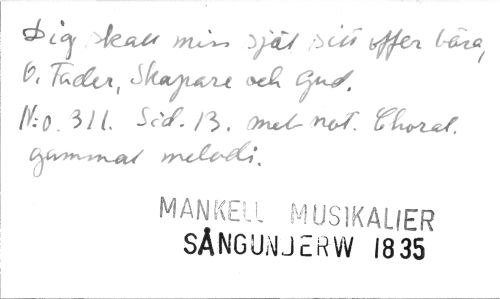 Dig skall min själ sitt offer bära,
O, Fader, Skapare och Gud.
N:o. 311. Sid. 13. med not. Choral.
gammal melodi.
MANKELL MUSIKALIER
SÅNGUNDERW 1835